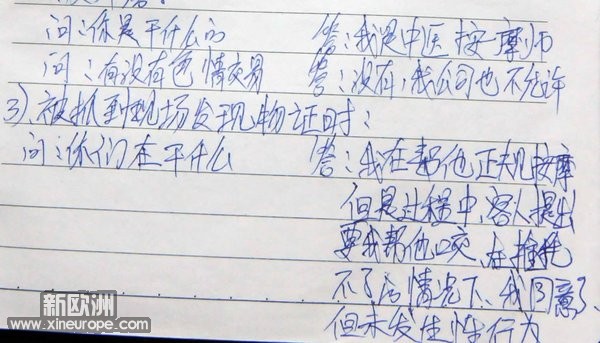 问：你是干什么的 答：我是中医按摩师
问：有没有色情交易 答：没有，我公司也不允许
3）、被抓到现场发现物证时：
问：你们在干什么 答：我在帮他正规按摩
但是过程中，客人提出
要我帮他咬，在推托
不了后情况下、我同意了、
但未发生性行为
新欧洲
www.xineurope.com